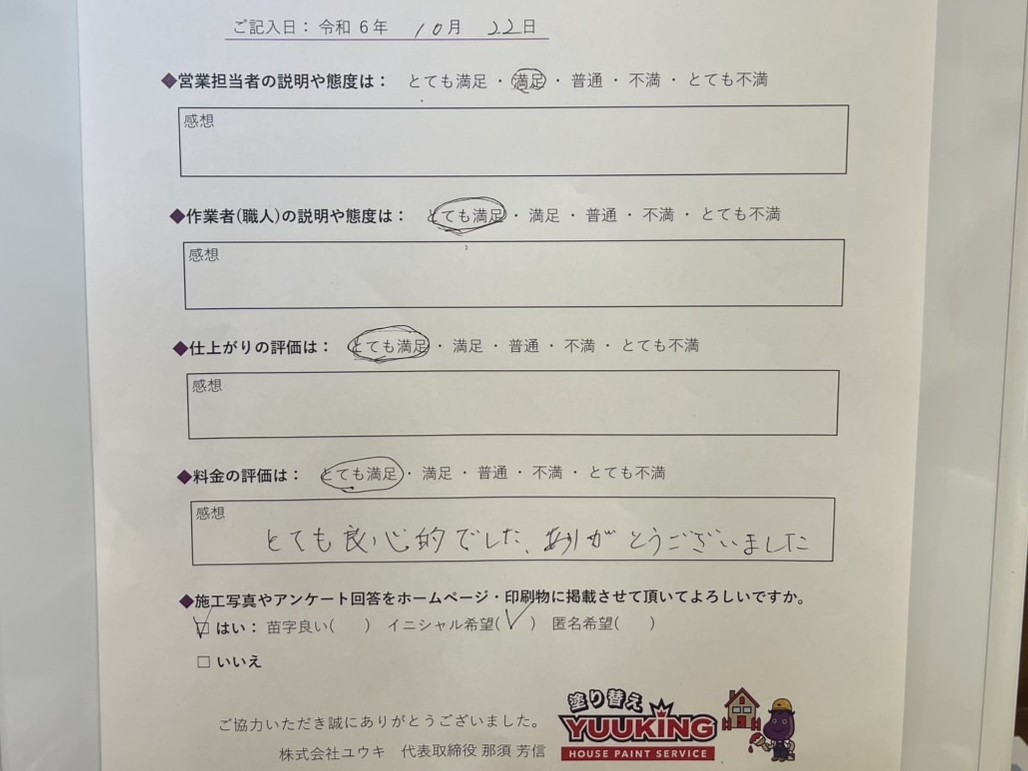 ご記入日：令和 6年 10月 22日
◆営業担当者の説明や態度は： とても満足 ・ 満足 ・ 普通 ・ 不満 ・ とても不満
感想
◆作業者(職人)の説明や態度は： とても満足 ・ 満足 ・ 普通 ・ 不満 ・ とても不満
感想
◆仕上がりの評価は： とても満足 ・ 満足 ・ 普通 ・ 不満 ・ とても不満
感想
◆料金の評価は： とても満足 ・ 満足 ・ 普通 ・ 不満 ・ とても不満
感想
とても良心的でした、ありがとうございました
◆施工写真やアンケート回答をホームページ・印刷物に掲載させて頂いてよろしいですか。
☑ はい： 苗字良い( ) イニシャル希望(✓) 匿名希望( )
□ いいえ
ご協力いただき誠にありがとうございました。
株式会社ユウキ 代表取締役 那須 芳信
塗り替え
YUUKING
HOUSE PAINT SERVICE